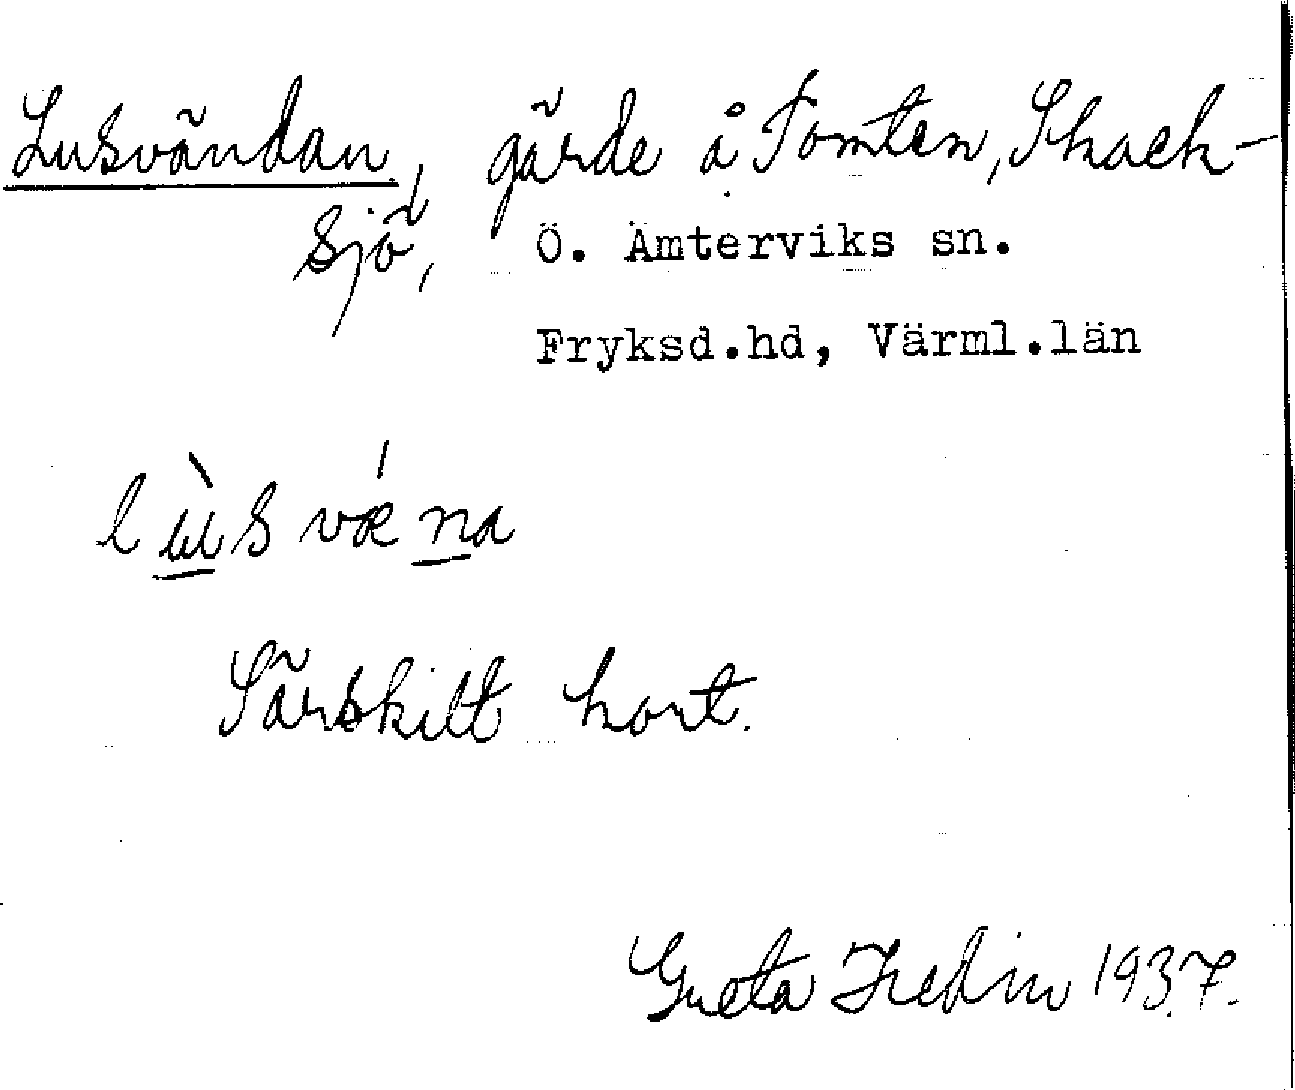 Lusvändan, gärde å Tomten, Skack-
sjö, Ö. Ämterviks sn.
Fryksd.hd, Värml.län
lùsvǽna
Särskilt kort.
Greta Hedin 1937.